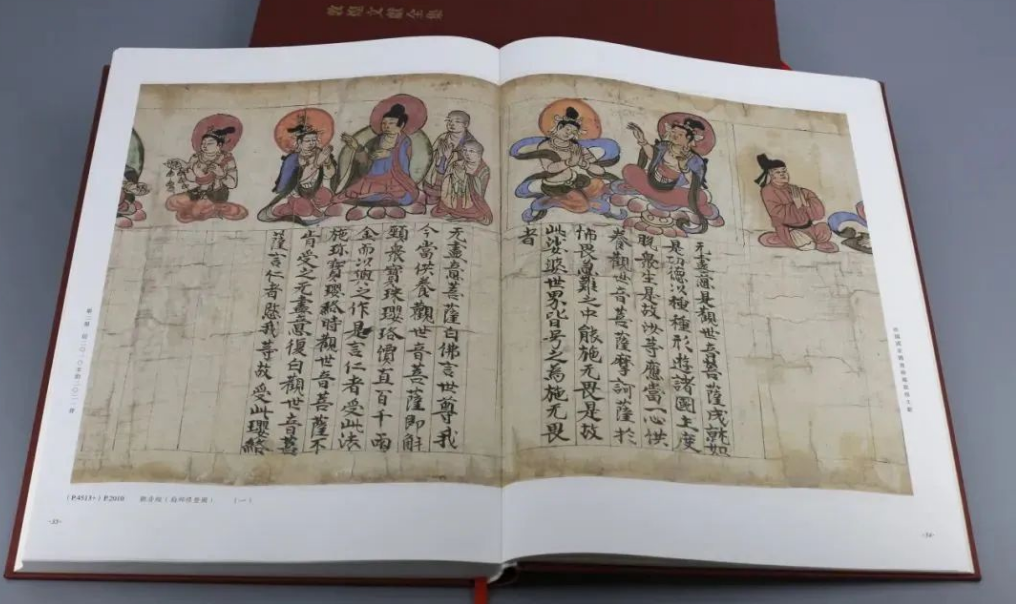 敦煌文獻全集
无盡意是觀世音菩薩成就如
是功德以種種形遊諸國土度
脫衆生是故汝等應當一心供
養觀世音菩薩摩訶薩於
怖畏急難之中能施无畏是故
此娑婆世界皆号之為施无畏
者
无盡意菩薩白佛言世尊我
今當供養觀世音菩薩即解
頸衆寶珠瓔珞價直百千兩
金而以與之作是言仁者受此法
施珍寶瓔珞時觀世音菩薩不
肯受之无盡意復白觀世音菩
薩言仁者愍我等故受此瓔珞
(P.4513+) P.2010 觀音經 (一)